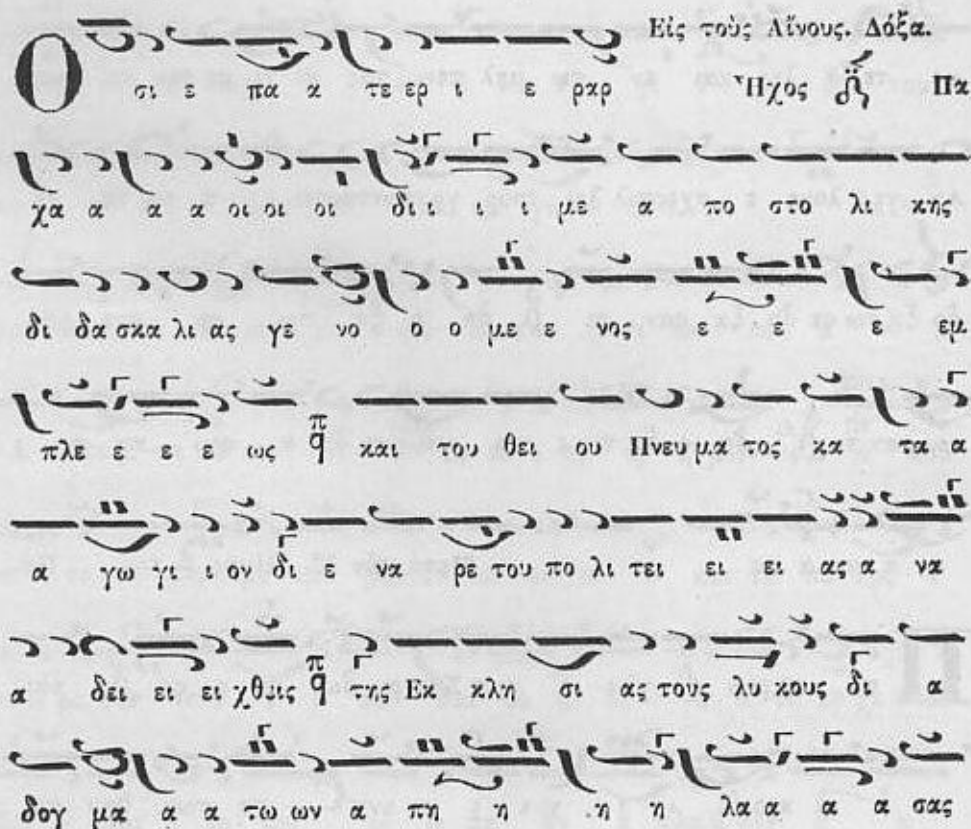 Εἰς τοὺς Αἴνους. Δόξα.
Ο σι ε πα α τε ερ ι ε ραρ Ἦχος Πα
χα α α α οι οι οι δι ι ι ι με α πο στο λι κης
δι δα σκα λι ας γε νο ο ο με ε νος ε ε ε εμ
πλε ε ε ε ως π q και του θει ου Πνευ μα τος κα τα α
α γω γι ι ον δι ε να ρε του πο λι τει ει ει ας α να
α δει ει ει χθεις π q της Εκ κλη σι ας τους λυ κους δι α
δογ μα α α τω ων α πη η η η λα α α α σας